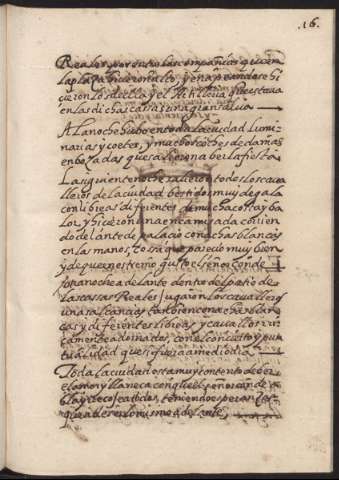 16.
Reales, por su [...] las compañias que [...]
la plaça hicieron alto, y [...] hi
cieron los de ella y el Artilleria que estava
en las dichas cassas una gran salva
A la noche hubo en toda la ciudad lumi-
narias y coetes, y muchos coches de damas
enboçadas que salieron a ber la fiesta
La siguiente noche salieron todos los cava
lleros de la ciudad bestidos muy de gala
con libreas diferentes de mucha costa y ba
lor, y hicieron una encamisada corrien
do delante de Palacio con achas blancas
en las manos, cossa que parecio muy bien
y de que en estremo gusto el señor Conde
otra noche adelante dentro del patio de
las cassas Reales jugaron los cavalleros
unas alcancias tanbien con achas blan
cas y diferentes libreas y cavallos ri
camente adornados, con el concierto y pun
tualidad que si fuera a mediodia
Toda la ciudad esta muy contenta de ber
el amor y llaneca con que el señor conde
[...] teniendo esperanças
[...] en lo mismo adelante